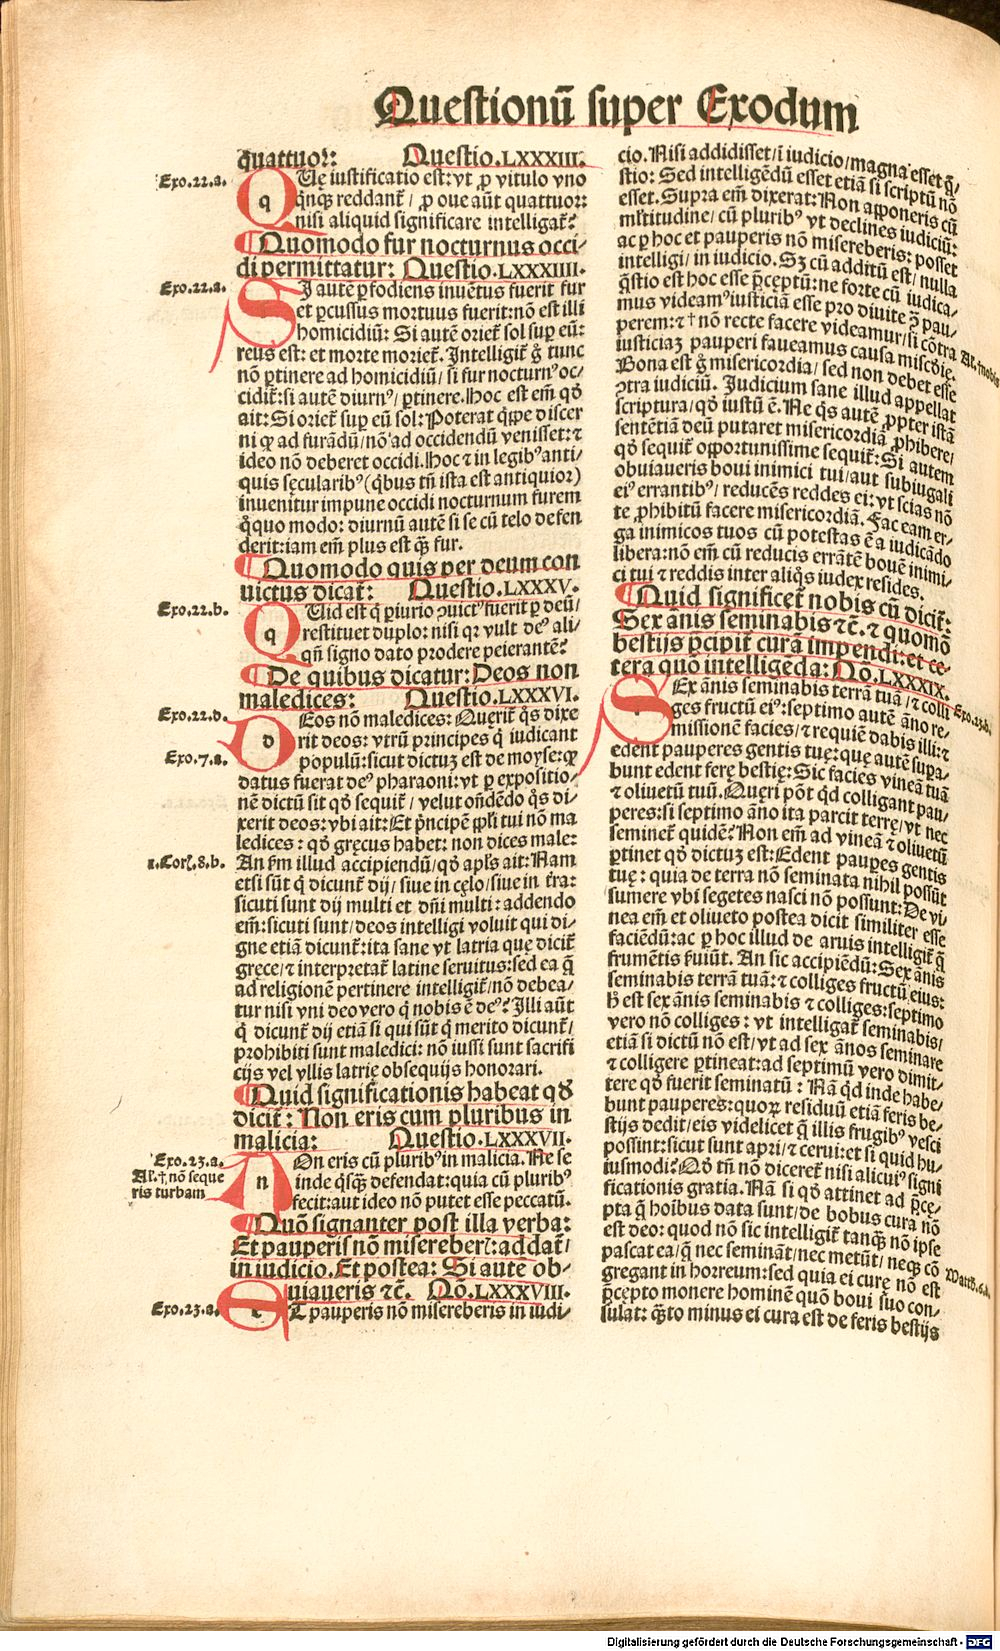 Questionū super Exodum
quattuor: Questio.LXXXIII.
Exo.22.a.
QUę iustificatio est: vt ꝓ vitulo vno
q̄nqꝫ reddant᷑ / ꝓ oue aūt quattuor:
nisi aliquid significare intelligat᷑?
¶ Quomodo fur nocturnus occi/
di permittatur: Questio.LXXXIIII.
Exo.22.a.
SI autē ꝑfodiens inuētus fuerit fur
et ꝑcussus mortuus fuerit: nō est illi
homicidiū: Si autē oriet᷑ sol sup eū:
reus est: et morte moriet᷑. Intelligit᷑ g̊ tunc
nō ꝑtinere ad homicidiū / si fur nocturnꝰ oc/
cidit᷑: si autē diurnꝰ / ꝑtinere. Hoc est em̄ qđ
ait: Si oriet᷑ sup eū sol: Poterat q̄ppe discer
ni ꝙ ad furādū / nō ad occidendū venisset: ⁊
ideo nō deberet occidi. Hoc ⁊ in legibꝰ anti/
quis sęcularibꝰ (q̄bus tn̄ ista est antiquior)
inuenitur impune occidi nocturnum furem
q̊quo modo: diurnū autē si se cū telo defen
derit: iam em̄ plus est q̄ꝫ fur.
¶ Quomodo quis per deum con
uictus dicat᷑: Questio.LXXXV.
Exo.22.b.
QUid est q̄ piurio ꝯuictꝰ fuerit ꝑ deū /
restituet duplo: nisi qꝛ vult deꝰ ali/
qn̄ signo dato prodere peierantē?
¶ De quibus dicatur: Deos non
maledices: Questio.LXXXVI.
Exo.22.d.
DEos nō maledices: Quęrit᷑ q̊s dixe
rit deos: vtrū principes q̄ iudicant
Exo.7.a.
populū: sicut dictuꝫ est de moyse: ꝙ
datus fuerat deꝰ pharaoni: vt ꝑ expositio/
nē dictū sit qđ sequit᷑ / velut ōndēdo q̊s di/
xerit deos: vbi ait: Et p̄ncipē ppl̄i tui nō ma
ledices: qđ gręcus habet: non dices male:
1.Corī.8.b.
An fm illud accipiendū / qđ apl̄s ait: Nam
etsi sūt q̄ dicunt᷑ dij / siue in cęlo / siue in t᷑ra:
sicuti sunt dij multi et dn̄i multi: addendo
em̄: sicuti sunt / deos intelligi voluit qui di/
gne etiā dicunt᷑: ita sane vt latria que dicit᷑
gręce / ⁊ interpretat᷑ latine seruitus: sed ea q̄
ad religionē pertinere intelligit᷑ / nō debea/
tur nisi vni deo vero q̄ nobis ē deꝰ? Illi aūt
q̄ dicunt᷑ dij etiā si qui sūt q̄ merito dicunt᷑ /
prohibiti sunt maledici: nō iussi sunt sacrifi
cijs vel vllis latrię obsequijs honorari.
¶ Quid significationis habeat qđ
dicit᷑: Non eris cum pluribus in
malicia: Questio.LXXXVII.
Exo.23.a.
Al.† nō seque
ris turbam
NOn eris cū pluribꝰ in malicia. Ne se
inde q̄sqꝫ defendat: quia cū pluribꝰ
fecit: aut ideo nō putet esse peccatū.
¶ Quō signanter post illa verba:
Et pauperis nō misereber᷑: addat᷑ /
in iudicio. Et postea: Si autē ob/
uiaueris ⁊c̄. Qō.LXXXVIII.
Exo.23.a.
ET pauperis nō misereberis in iudi/
cio. Nisi addidisset / ī iudicio / magna esset q̄/
stio: Sed intelligēdū esset etiā si scriptū nō
esset. Supra em̄ dixerat: Non apponeris cū
ml̄titudine / cū pluribꝰ vt declines iudiciū:
ac ꝑ hoc et pauperis nō misereberis: posset
intelligi / in iudicio. Sꝫ cū additū est / nulla
q̄stio est hoc esse p̄ceptū: ne forte cū iudica/
mus videamꝰ iusticiā esse pro diuite p̄ pau/
perem: ⁊ † nō recte facere videamur / si cōtra
Al. † nobis
iusticiaꝫ pauperi faueamus causa misc̄dię.
Bona est g̊ misericordia / sed non debet esse
ꝯtra iudiciū. Judicium sane illud appellat
scriptura / qđ iustū ē. Ne q̊s autē ꝓpter istā
sentētiā deū putaret misericordiā ꝓhibere /
qđ sequit᷑ opportunissime sequit᷑: Si autem
obuiaueris boui inimici tui / aut subiugali
eiꝰ errantibꝰ / reducēs reddes ei: vt scias nō
te ꝓhibitū facere misericordiā. Fac eam er/
ga inimicos tuos cū potestas ē a iudicādo
libera: nō em̄ cū reducis errātē bouē inimi/
ci tui ⁊ reddis inter aliq̊s iudex resides.
¶ Quid significet᷑ nobis cū dicit᷑:
Sex ānis seminabis ⁊c̄. ⁊ quomō
bestijs p̄cipit᷑ curā impendi: et ce/
tera quō intelligēda: Qō.LXXXIX.
Exo.23.b.
SEx ānis seminabis terrā tuā / ⁊ colli
ges fructū eiꝰ: septimo autē āno re/
missionē facies / ⁊ requiē dabis illi: ⁊
edent pauperes gentis tuę: que autē supa/
bunt edent ferę bestię: Sic facies vineā tuā
⁊ oliuetū tuū. Quęri pōt q̄d colligant pau/
peres: si septimo āno ita parcit terrę / vt nec
seminet᷑ quidē? Non em̄ ad vineā ⁊ oliuetū
ꝑtinet qđ dictuꝫ est: Edent pauꝑes gentis
tuę: quia de terra nō seminata nihil possūt
sumere vbi segetes nasci nō possunt: De vi/
nea em̄ et oliueto postea dicit similiter esse
faciēdū: ac ꝑ hoc illud de aruis intelligit᷑ q̄
frumētis ẜuiūt. An sic accipiēdū: Sex ānis
seminabis terrā tuā: ⁊ colliges fructū eius:
h̄ est sex ānis seminabis ⁊ colliges: septimo
vero nō colliges: vt intelligat᷑ seminabis /
etiā si dictū nō est / vt ad sex ānos seminare
⁊ colligere ꝑtineat: ad septimū vero dimit/
tere qđ fuerit seminatū: Nā q̄d inde habe/
bunt pauperes: quoꝝ residuū etiā feris be/
stijs dedit / eis videlicet q̄ illis frugibꝰ vesci
possint: sicut sunt apri / ⁊ cerui: et si quid hu/
iusmodi? Qđ tn̄ nō diceret᷑ nisi alicuiꝰ signi
ficationis gratia. Nā si qđ attinet ad p̄cę/
pta q̄ hoibus data sunt / de bobus cura nō
est deo: quod nō sic intelligit᷑ tanqꝫ nō ipse
pascat ea / q̄ nec semināt / nec metūt / neqꝫ cō
Matth.6.d.
gregant in horreum: sed quia ei curę nō est
p̄cepto monere hominē quō boui suo con/
sulat: q̄ꝫto minus ei cura est de feris bestijs
Digitalisierung gefördert durch die Deutsche Forschungsgemeinschaft - DFG